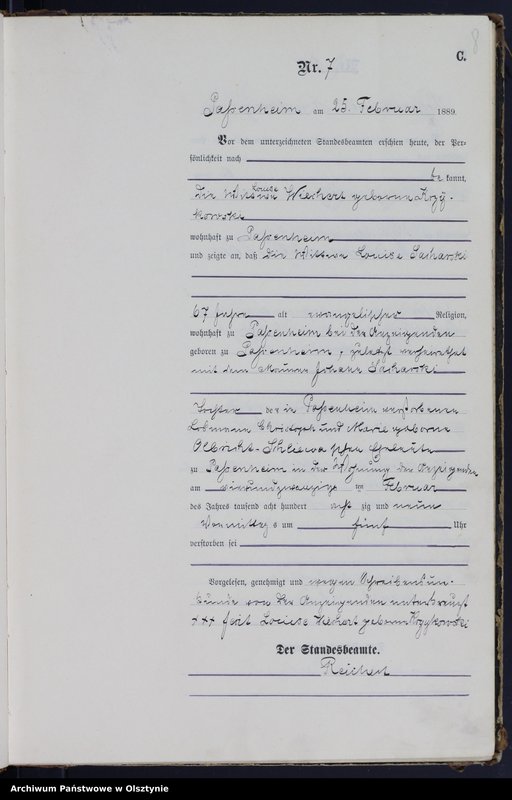 8
C.
Nr. 7
Passenheim am 25. Februar 1889.
Vor dem unterzeichneten Standesbeamten erschien heute, der Per-
sönlichkeit nach
be kannt,
die Wittwe Louise Wiechert geborene Krzy-
kowski
wohnhaft zu Passenheim
und zeigte an, daß die Wittwe Louise Sacharski
67 Jahre alt evangelischer Religion,
wohnhaft zu Passenheim bei der Anzeigenden
geboren zu Passenheim, zuletzt verheirathet
mit dem Maurer Johann Sacharski
Tochter der in Passenheim verstorbenen
Christoph und Marie geborene
Olbricht- Eheleute
zu Passenheim in der Wohnung der Anzeigenden
am vierundzwanzigsten Februar
des Jahres tausend acht hundert acht zig und neun
Vormittags um fünf Uhr
verstorben sei
Vorgelesen, genehmigt und wegen Schreibensun-
kunde von der Anzeigenden unterkreuzt
+++ Louise Wiechert geborne Krzykowski
Der Standesbeamte.
Reichert
Archiwum Państwowe w Olsztynie